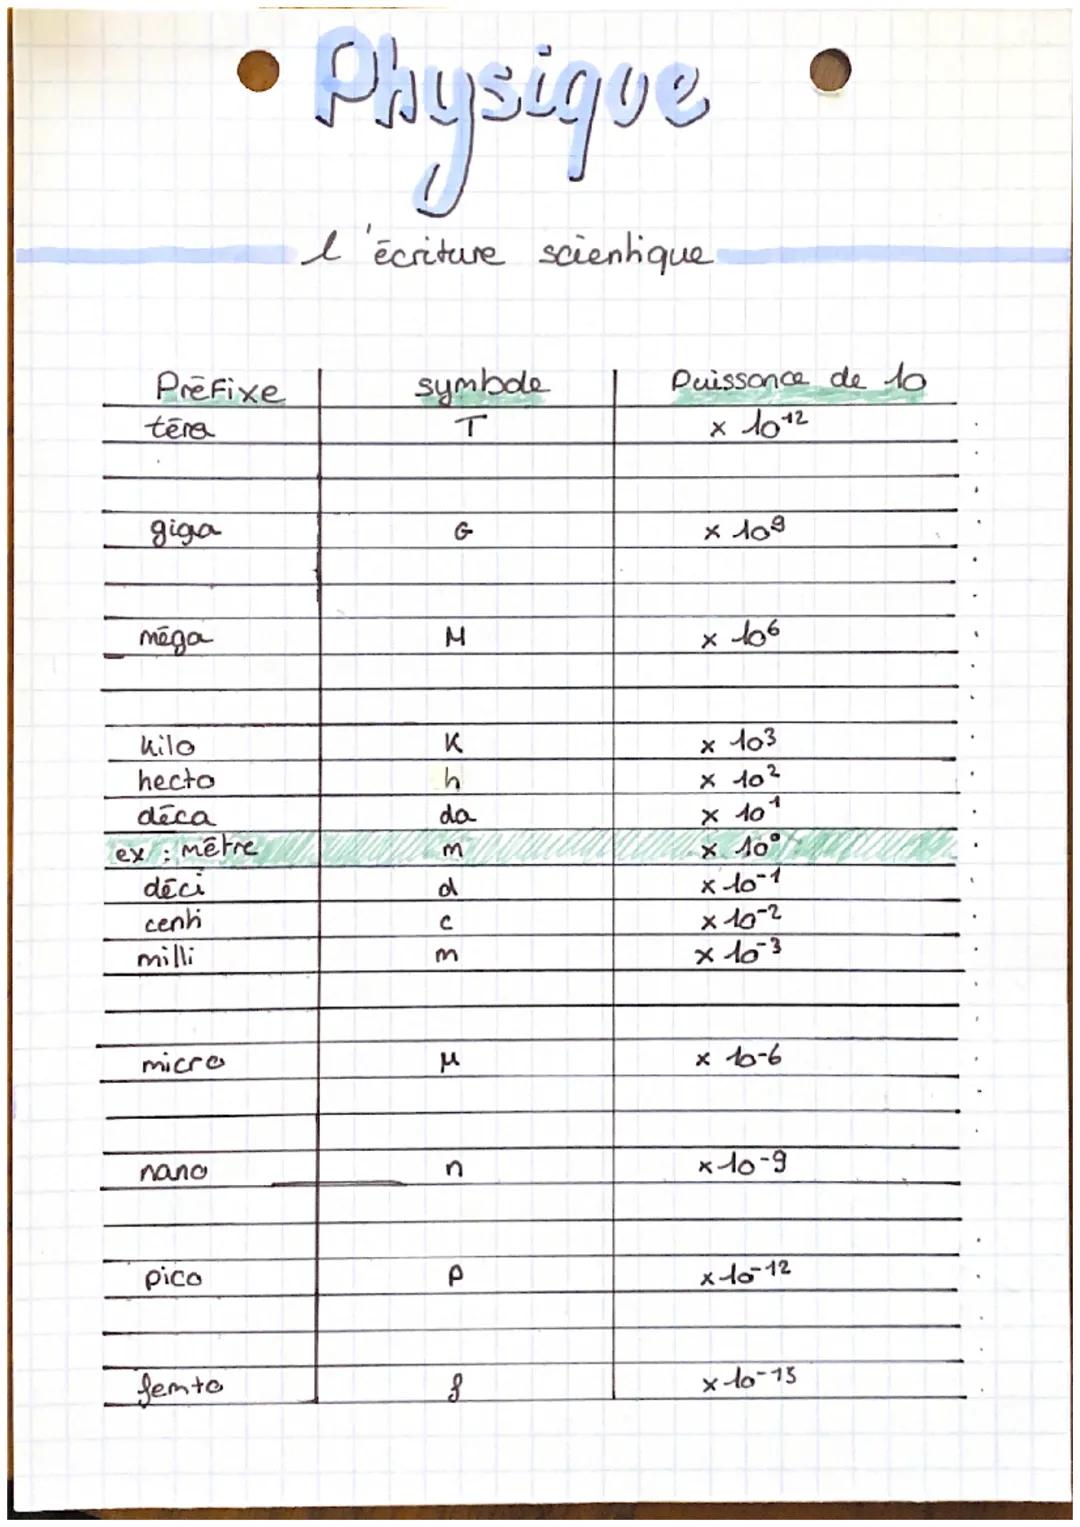 Physique
l'écriture scientique
Préfixe symbole Puissance de 10
téra T × 10¹²
giga G × 10⁹
méga M × 10⁶
kilo K × 10³
hecto h × 10²
déca da × 10¹
ex : mètre m × 10⁰
déci d × 10⁻¹
centi c × 10⁻²
milli m × 10⁻³
micro μ × 10-6
nano n × 10-9
pico p × 10-12
femto f × 10-15